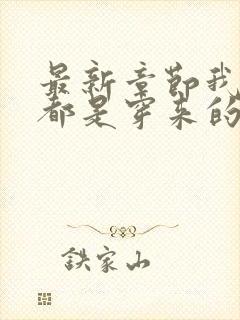 最新章节我
都是穿来的
铁家山